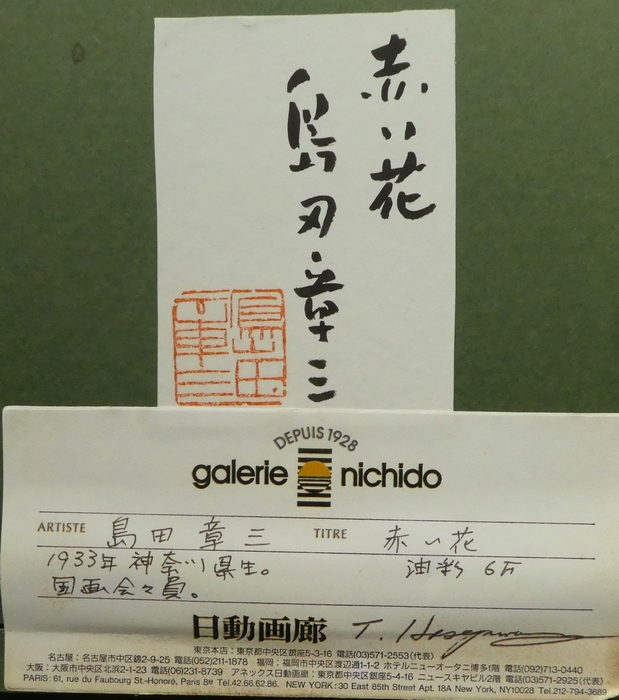 赤い花
島田章三
島田章三
DEPUIS 1928
galerie nichido
ARTISTE 島田章三 TITRE 赤い花
1933年神奈川県生。 油彩 6F
国画会々員。
日動画廊 T. Hasegawa
東京本店：東京都中央区銀座5-3-16 電話(03)571-2553(代表)
名古屋：名古屋市中区錦2-9-25 電話(052)211-1878 福岡：福岡市中央区渡辺通1-1-2 ホテルニューオータニ博多1階 電話(092)713-0440
大阪：大阪市中央区北浜2-1-23 電話(06)231-8739 アネックス日動画廊：東京都中央区銀座5-4-16 ニュースキヤビル2階 電話(03)571-2925(代表)
PARIS: 61, rue du Faubourg St.-Honoré, Paris 8e Tél.42.66.62.86. NEW YORK: 30 East 85th Street Apt. 18A New York, NY10028 Tel.212-794-3689